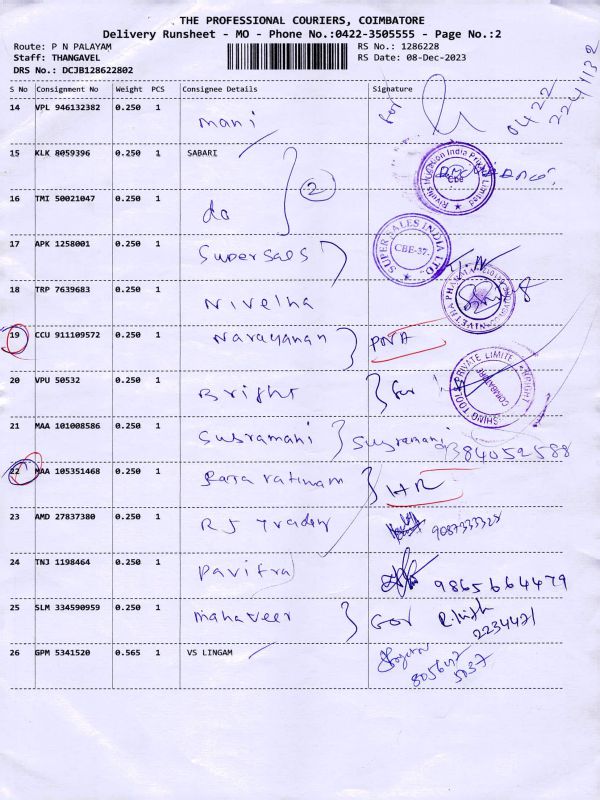 THE PROFESSIONAL COURIERS, COIMBATORE
Delivery Runsheet - MO - Phone No.:0422-3505555 - Page No.:2
Route: P N PALAYAM
RS No.: 1286228
Staff: THANGAVEL
RS Date: 08-Dec-2023
DRS No.: DCJB128622802
S No Consignment No Weight PCS Consignee Details Signature
14 VPL 946132382 0.250 1 mani for 0422
15 KLK 8059396 0.250 1 SABARI
16 TMI 50021047 0.250 1 do 2
SUPER SALES INDIA LTD. CBE-37.
17 APK 1258001 0.250 1 Supersaes
18 TRP 7639683 0.250 1 Nivelha
19 CCU 911109572 0.250 1 Narayanan
20 VPU 50532 0.250 1 Bright for
PRIVATE LIMITE COIMBATORE
21 MAA 101008586 0.250 1 Subramani Subramani 9384052588
22 MAA 105351468 0.250 1 Raja ratinam
23 AMD 27837380 0.250 1 RJ Trader 9087333328
24 TNJ 1198464 0.250 1 Pavitra 9865664479
25 SLM 334590959 0.250 1 mahaveer for 2234421
26 GPM 5341520 0.565 1 VS LINGAM